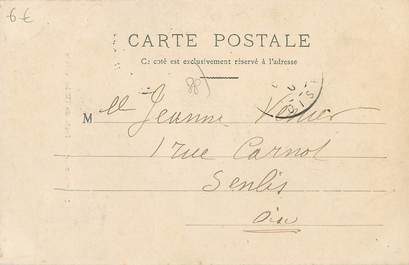 6€
CARTE POSTALE
Ce côté est exclusivement réservé à l'adresse
Mlle Jeanne
1 rue Carnot
Senlis
Oise